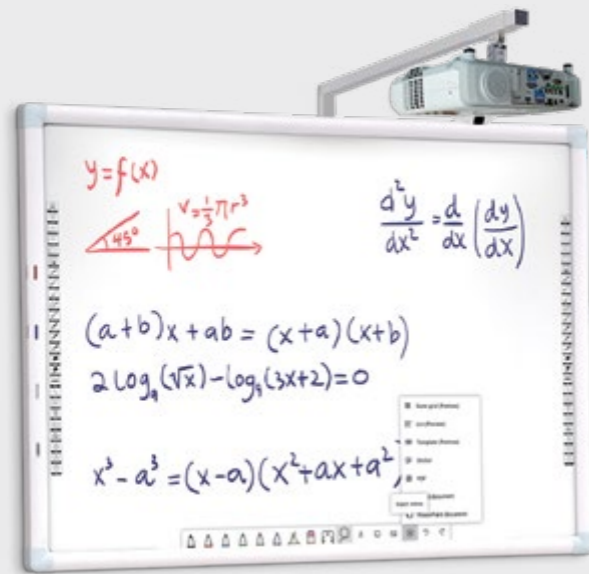 y=f(x)
45°
V=⅓πr³
d²y/dx² = d/dx (dy/dx)
(a+b)x+ab=(x+a)(x+b)
2log₉(√x)-log₉(3x+2)=0
x³-a³=(x-a)(x²+ax+a²)